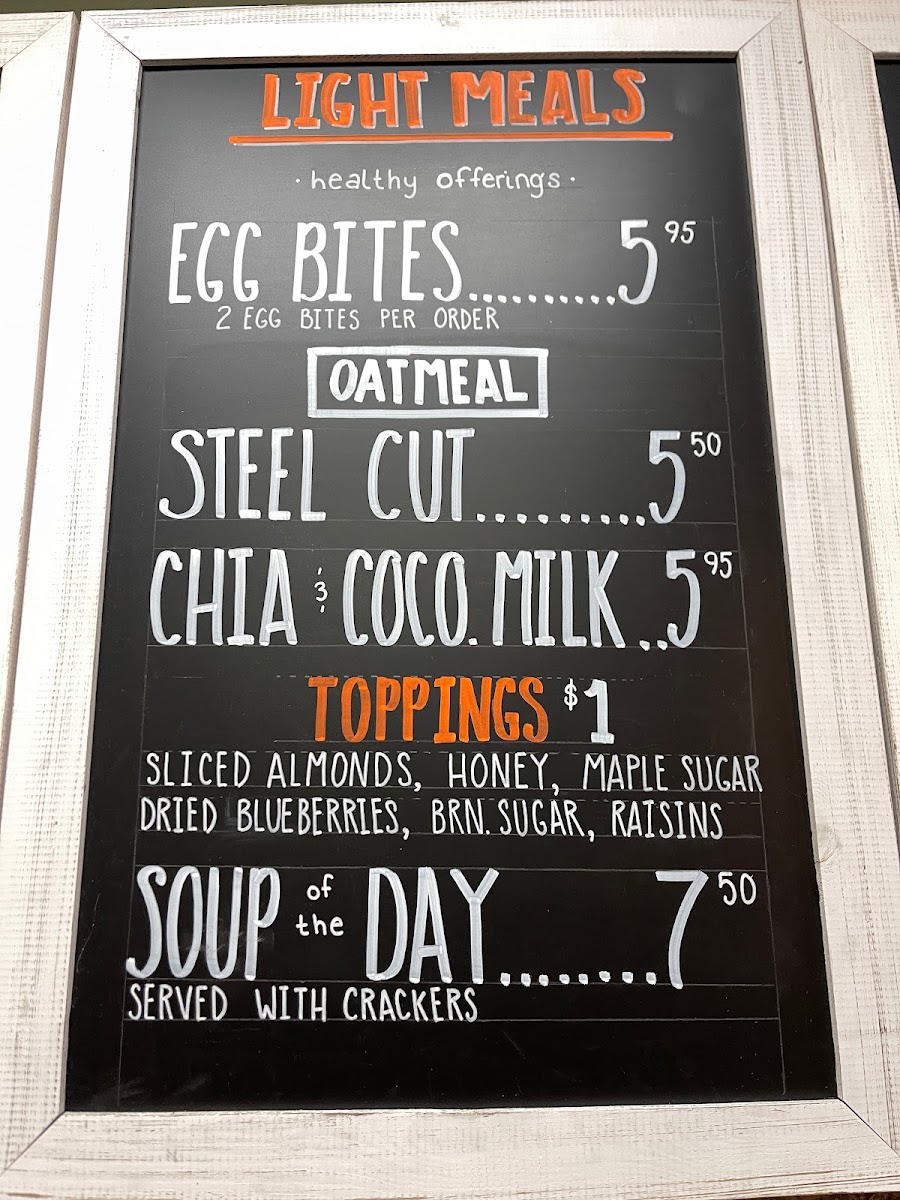 LIGHT MEALS
· healthy offerings ·
EGG BITES..........5 95
2 EGG BITES PER ORDER
OATMEAL
STEEL CUT.........5 50
CHIA & COCO. MILK..5 95
TOPPINGS $1
SLICED ALMONDS, HONEY, MAPLE SUGAR
DRIED BLUEBERRIES, BRN. SUGAR, RAISINS
SOUP of the DAY........7 50
SERVED WITH CRACKERS